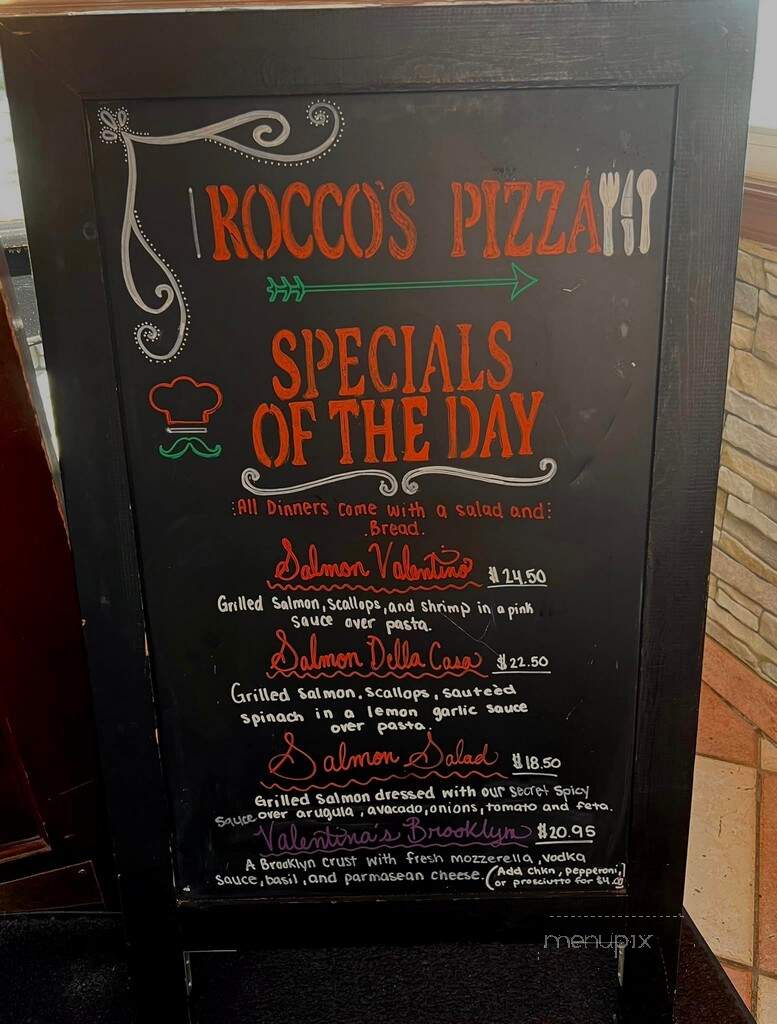 ROCCO'S PIZZA
SPECIALS
OF THE DAY
:All Dinners come with a salad and:
.Bread.
Salmon Valentino $24.50
Grilled Salmon, scallops, and shrimp in a pink
sauce over pasta.
Salmon Della Casa $22.50
Grilled Salmon, scallops, sauteèd
spinach in a lemon garlic sauce
over pasta.
Salmon Salad $18.50
Grilled Salmon dressed with our secret spicy
sauce over arugula, avacado, onions, tomato and feta.
Valentina's Brooklyn $20.95
A Brooklyn crust with fresh mozzerella, vodka
sauce, basil, and parmasean cheese. (Add chkn, pepperoni,
or prosciutto for $4.
menupix